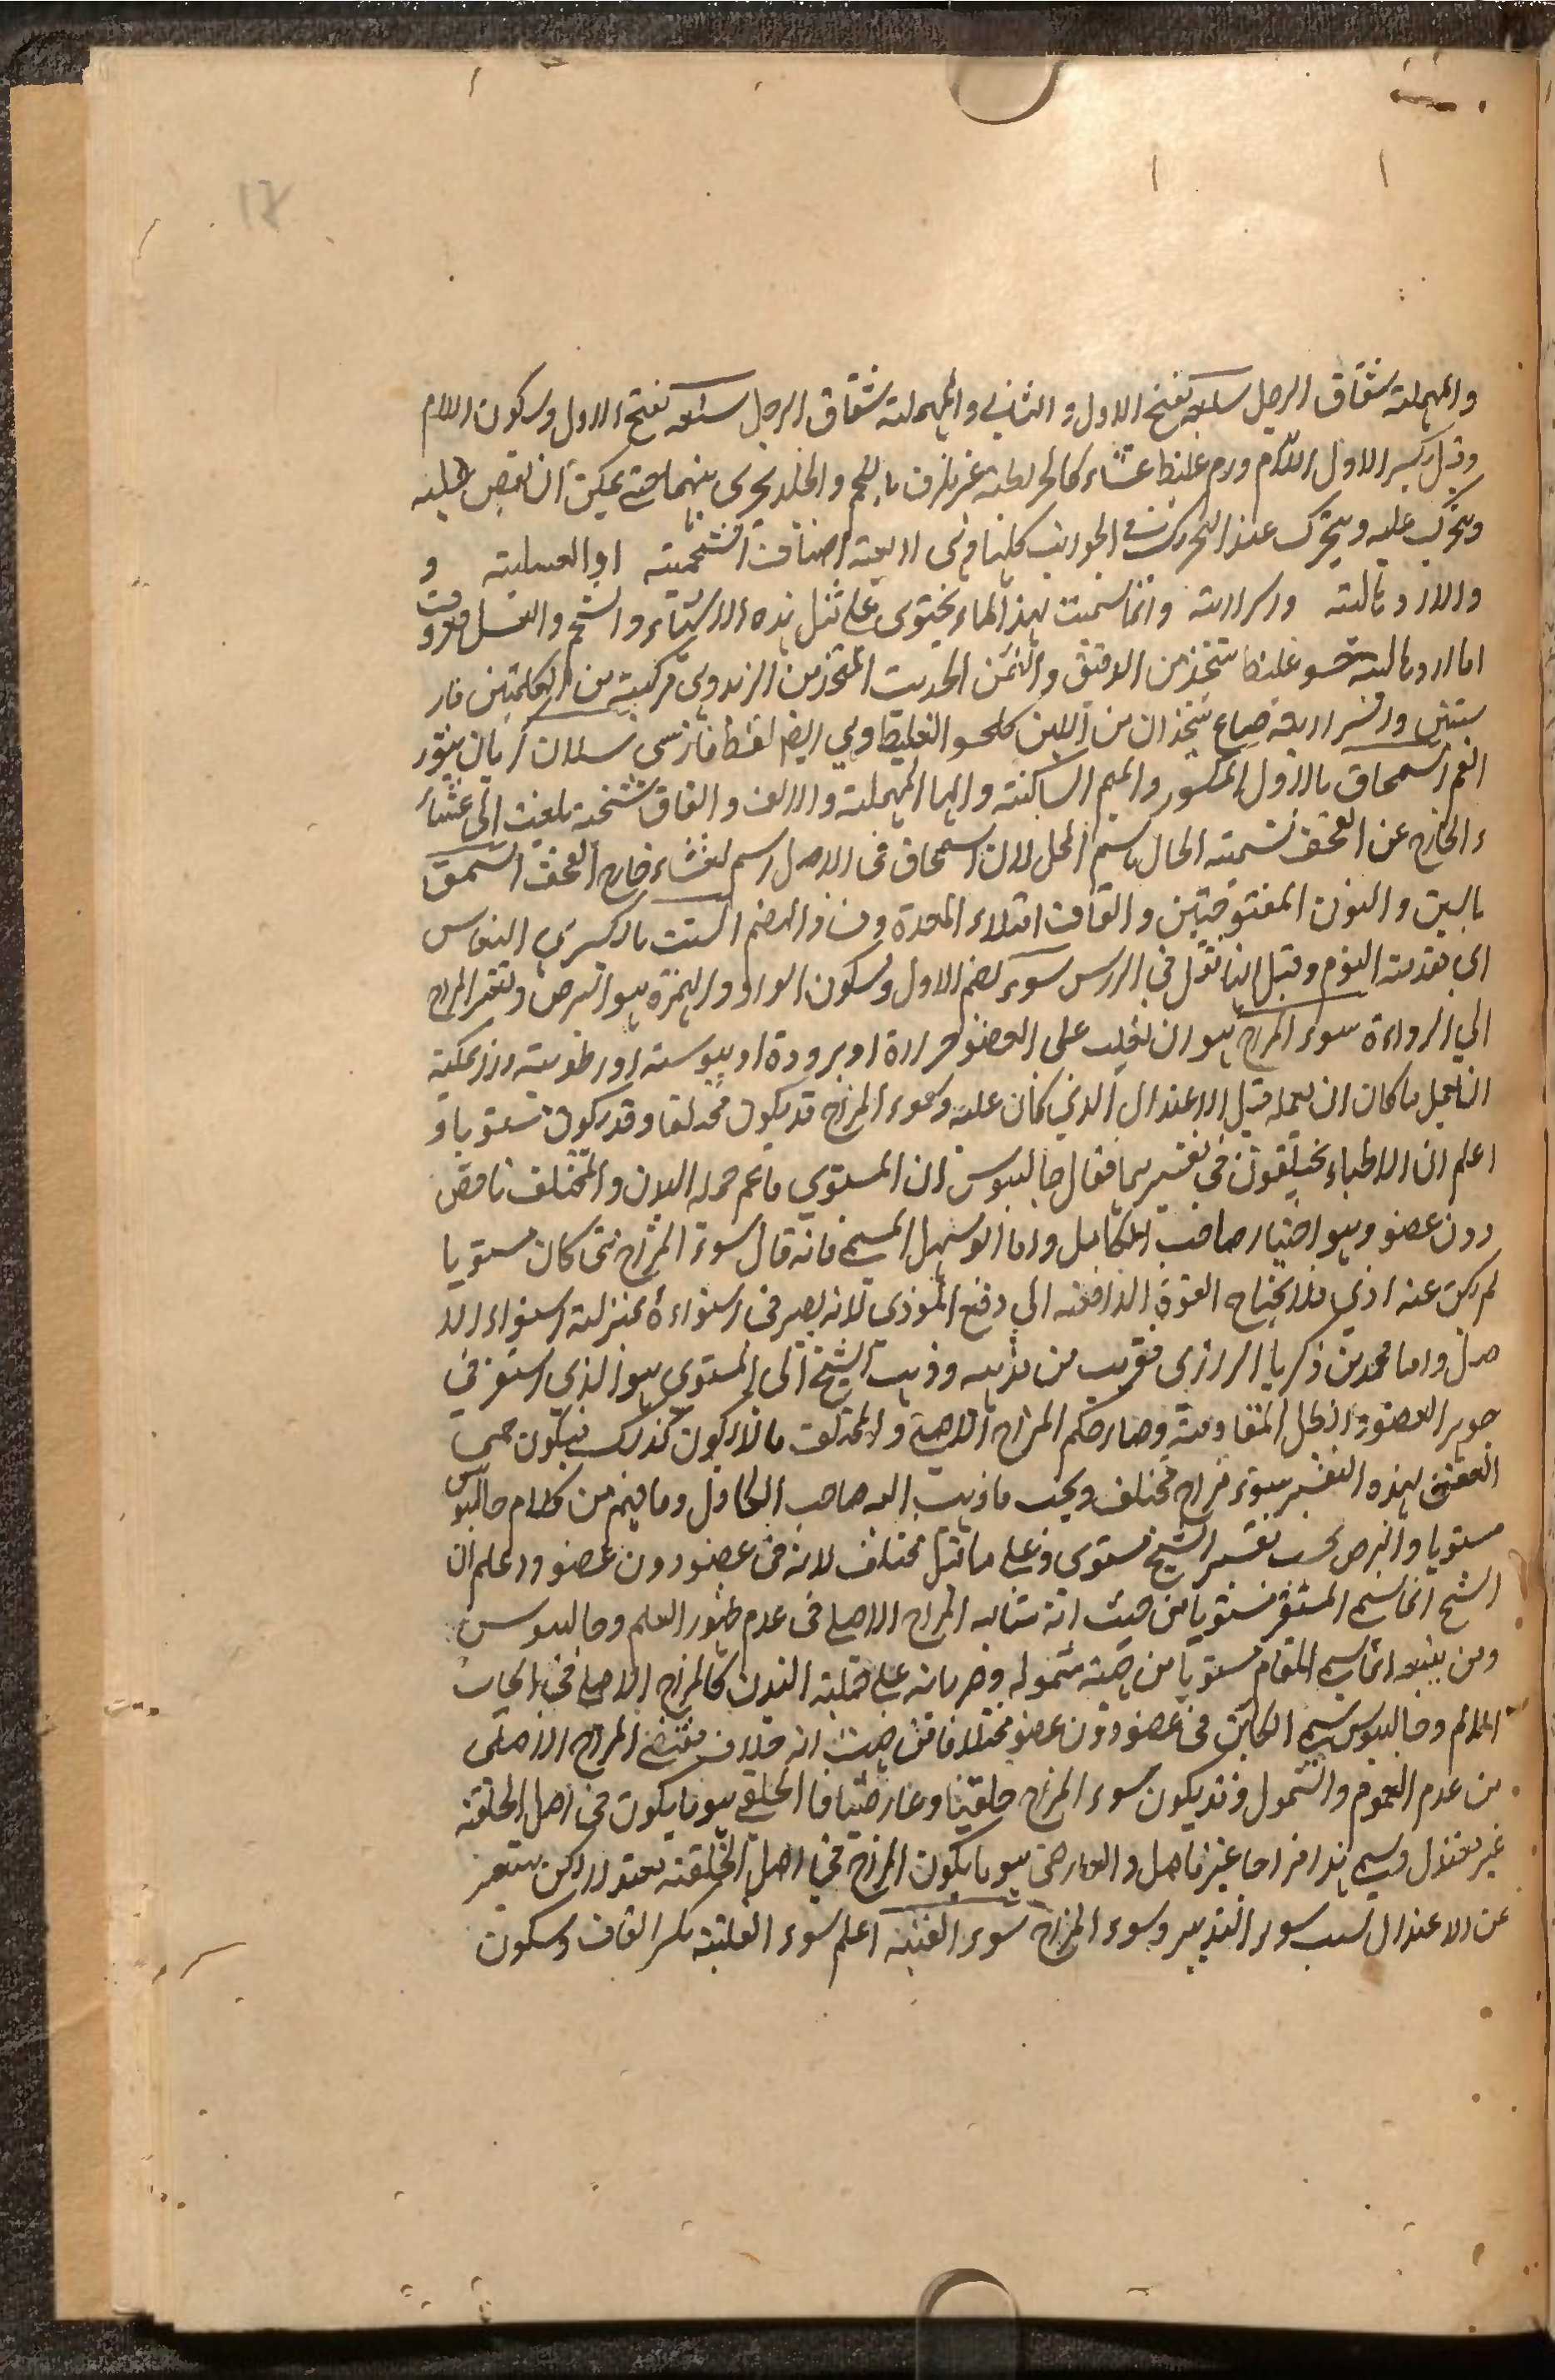 والمهملة شقاق الرجل سلعه بفتح الاول والثاني والمهملة شقاق الرجل سلعه بفتح الاول وسكون اللام
وقيل بكسر الاول اللام ورم غليظ غشاء كالخريطة غير ملزق باللحم والجلد يجري بينهما حتى يمكن ان يقبض عليه
ويتحرك عليه ويتحرك عند التحريك في الجوانب كلها وهي اربعة اصناف الشحمية او العسلية و
والاردهالية والسرارية وانما سميت بهذا لما يحتوي على مثل هذه الاشياء والشحم والعسل معروف
اما الاردهالية حسو غليظ يتخذ من الدقيق والسمن الحديث المتخذ من الزبد وهي مركبة من الكلمتين فار
سيتين وانسر اربعة صياع يتخذ ان من اللبن كالحسو الغليظ وهي ايضا لفظ فارسي سلان
الغم السمحاق بالاول المكسور والميم الساكنة والحا المهملة والالف والقاف شحنة بلغت الى غشا
ء الخارج عن القحف تسمية الحال باسم المحل لان السمحاق في الاصل اسم لغشاء خارج القحف السنق
بالسين والنون المفتوحتين والقاف امتلاء المعدة وفساد الهضم السنت بالكسر هي النعاس
اي مقدمة النوم وقيل انها ثقل في الراس سوء بضم الاول وسكون الواو والهمزة هو البرص وتغير المزاج
الى الرداءة سوء المزاج هو ان يغلب على العضو حرارة او برودة او يبوسة او رطوبة لا يمكنه
ان يعمل ما كان ان يعمله قبل الاعتدال الذي كان عليه وسوء المزاج قد يكون مختلفا وقد يكون مستويا و
اعلم ان الاطباء يختلفون في تفسيرهما فقال جالينوس ان المستوي ما عم جملة البدن والمختلف ما خص
دون عضو وهو اختيار صاحب الكامل واما ابو سهل المسيحي فانه قال سوء المزاج متى كان مستويا
لم يكن عنه اذى فلا يحتاج القوة الدافعة الى دفع الموذي لانه يصير في استواءه بمنزلة استواء الا
صل واما محمد بن زكريا الرازي فقريب من مذهبه وذهب الشيخ الى المستوي هو الذي استقر في
جوهر العضو اذ ابطل المقاومة وصار حكم المزاج الاصلي والمختلف ما لا يكون كذلك فيكون حمى
العفن لهذه التفسير سوء مزاج مختلف ويجب ما ذهب اليه صاحب الكامل وما فهم من كلام جالينوس
مستويا والبرص بحسب تفسير الشيخ مستوي وعلى ما قيل مختلف لانه في عضو دون عضو واعلم ان
الشيخ انما سمى المستقر مستويا من حيث انه شابه المزاج الاصلي في عدم ظهور العلم وجالينوس
ومن يتبعه انما سمى المقام مستويا من جهة شموله وجريانه على جملة البدن كالمزاج الاصلي في ايجاب
الالم وجالينوس سمى الكائن في عضو دون عضو مختلفا من حيث انه خلاف مقتضى المزاج الاصلي
من عدم العموم والشمول وقد يكون سوء المزاج خلقيا وعارضيا فالخلقي هو ما يكون في اصل الخلقة
غير معتدل ويسمى هذا مزاجا غير فاضل والعارضي هو ما يكون المزاج في اصل الخلقة معتدلا لكن يتغير
عن الاعتدال بسبب سوء التدبير وسوء المزاج سوء القنية اعلم سوء القنية بكسر القاف وسكون